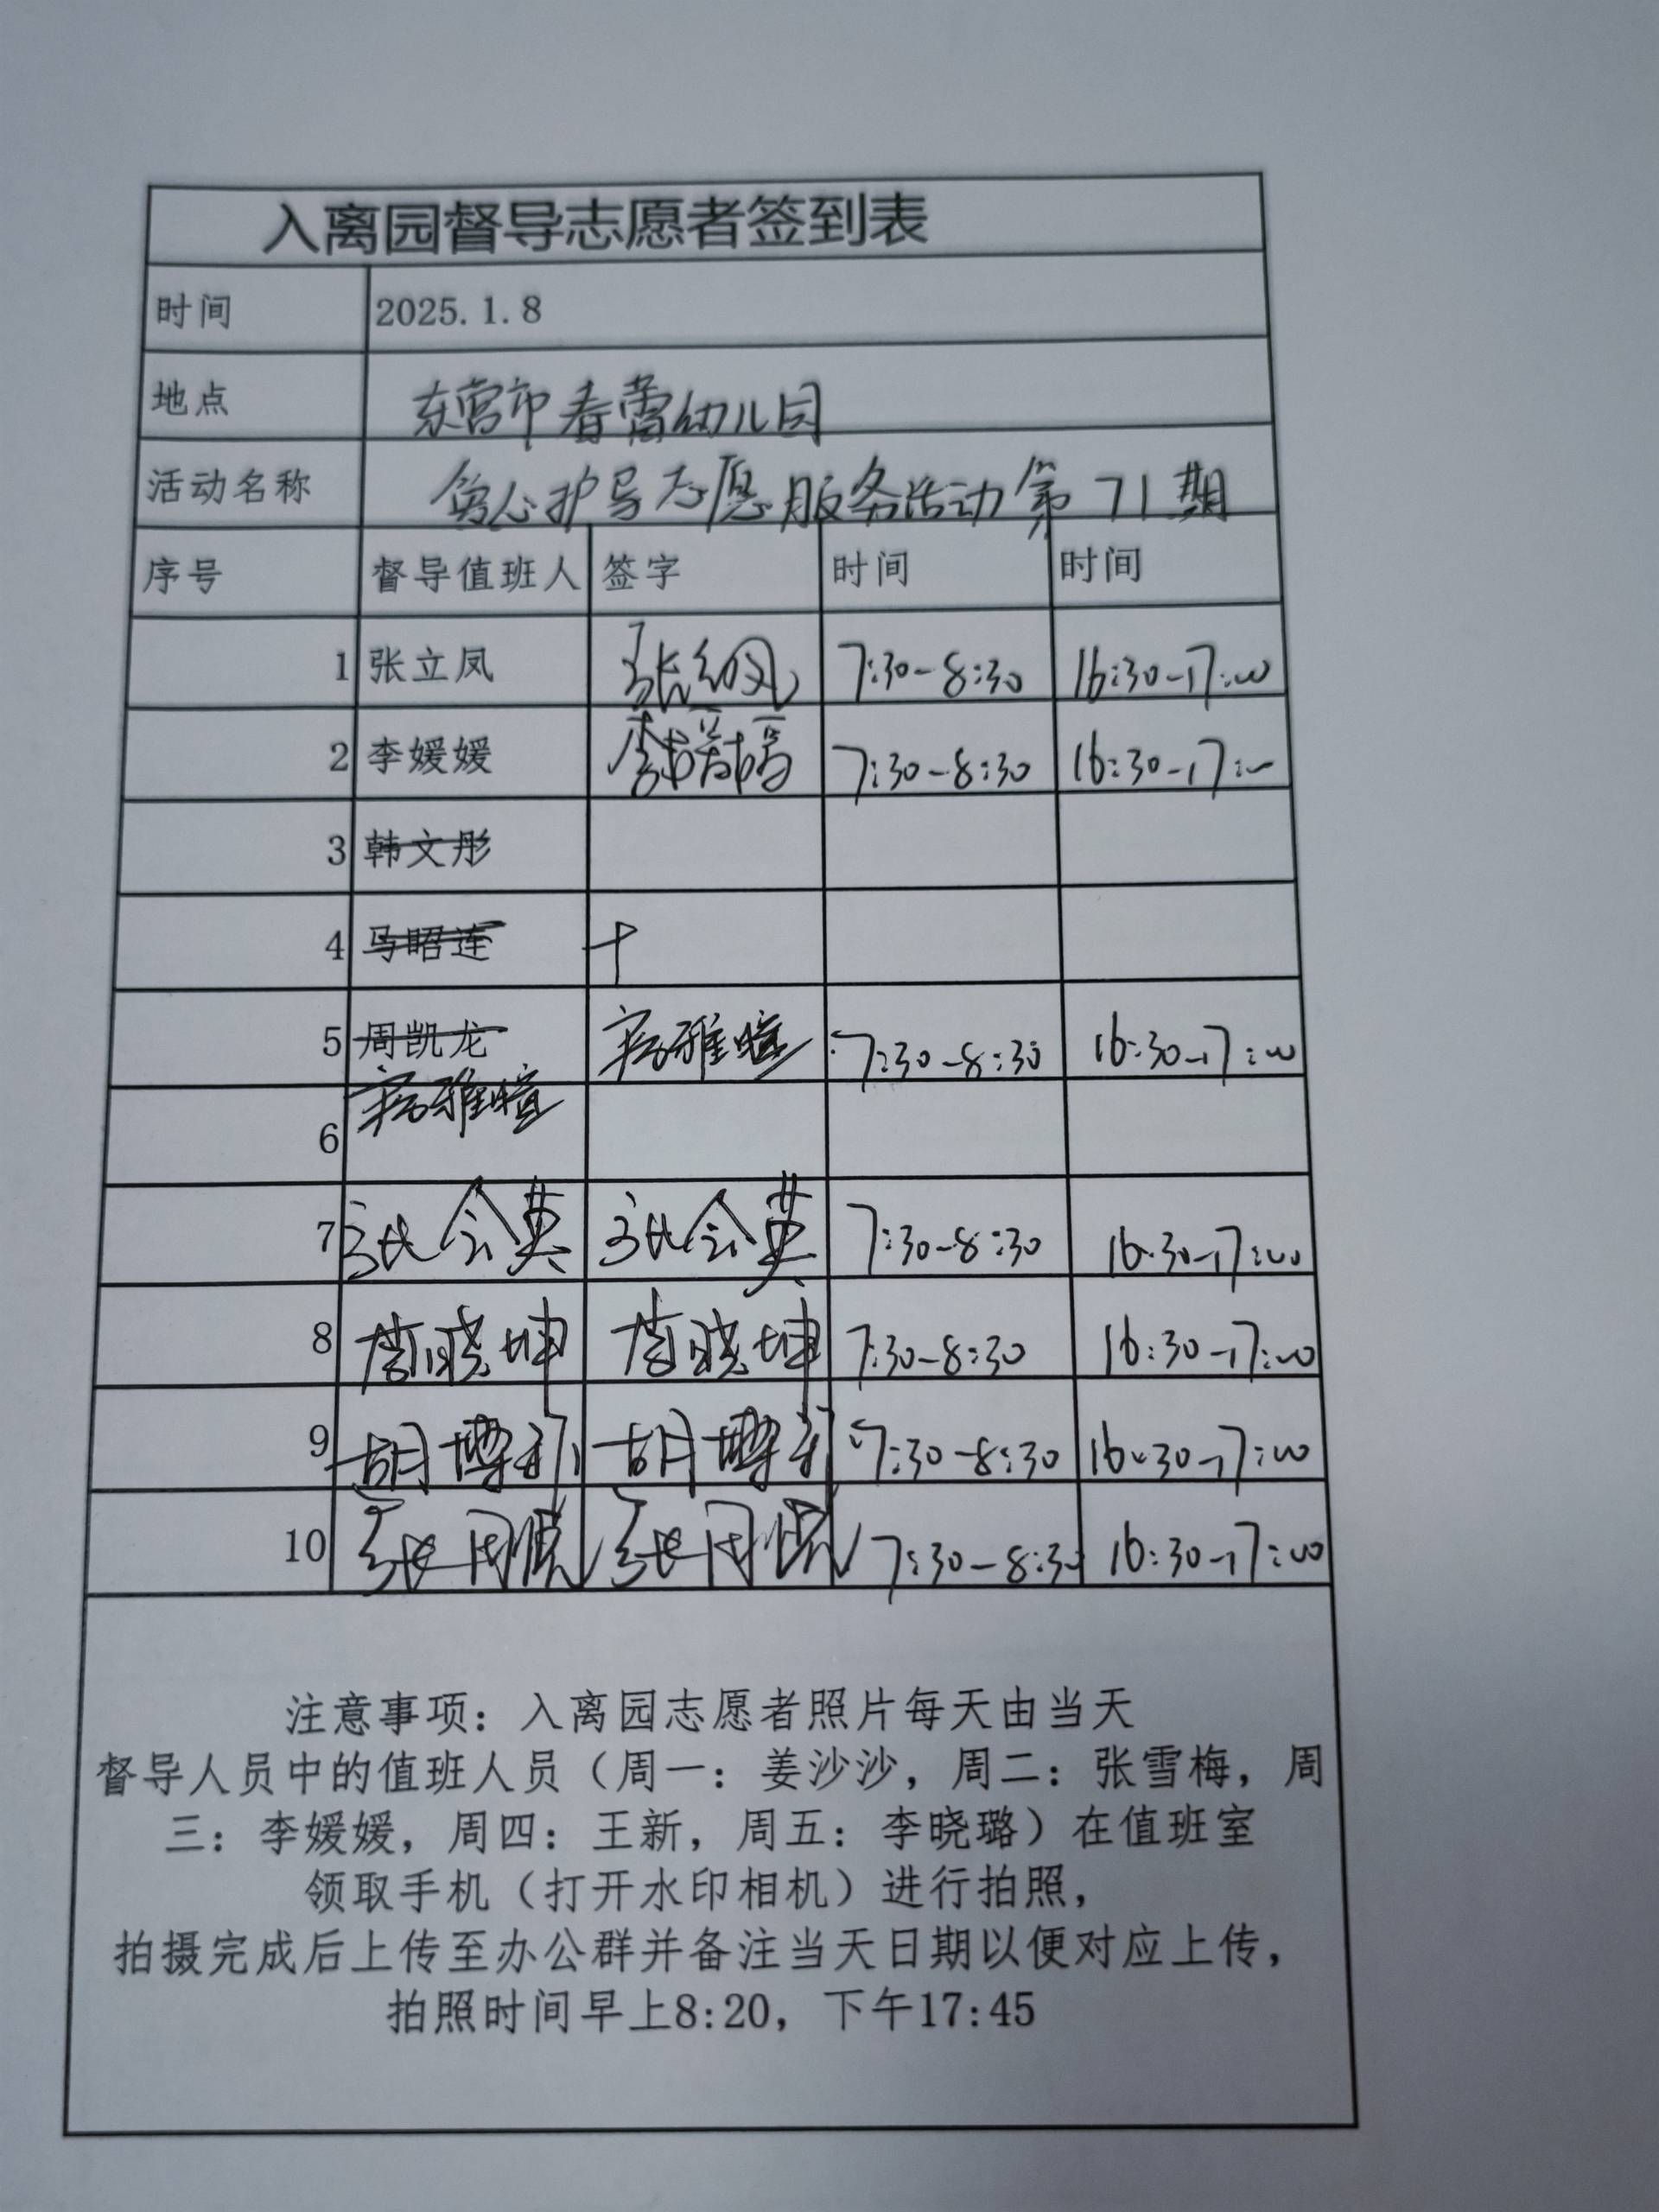 入离园督导志愿者签到表
时间 2025.1.8
地点 东营市春蕾幼儿园
活动名称 护导志愿服务活动第71期
序号 督导值班人 签字 时间 时间
1 张立凤 张立凤 7:30-8:30 16:30-17:00
2 李媛媛 7:30-8:30 16:30-17:
3 韩文彤
4 马昭连
5 周凯龙 雅暄 7:30-8:30 16:30-17:00
6 雅暄
7 张会英 张会英 7:30-8:30 16:30-17:00
8 李晓坤 李晓坤 7:30-8:30 16:30-17:00
9 胡博 胡博 7:30-8:30 16:30-17:00
10 张 张 7:30-8:30 16:30-17:00
注意事项：入离园志愿者照片每天由当天
督导人员中的值班人员（周一：姜沙沙，周二：张雪梅，周
三：李媛媛，周四：王新，周五：李晓璐）在值班室
领取手机（打开水印相机）进行拍照，
拍摄完成后上传至办公群并备注当天日期以便对应上传，
拍照时间早上8:20，下午17:45